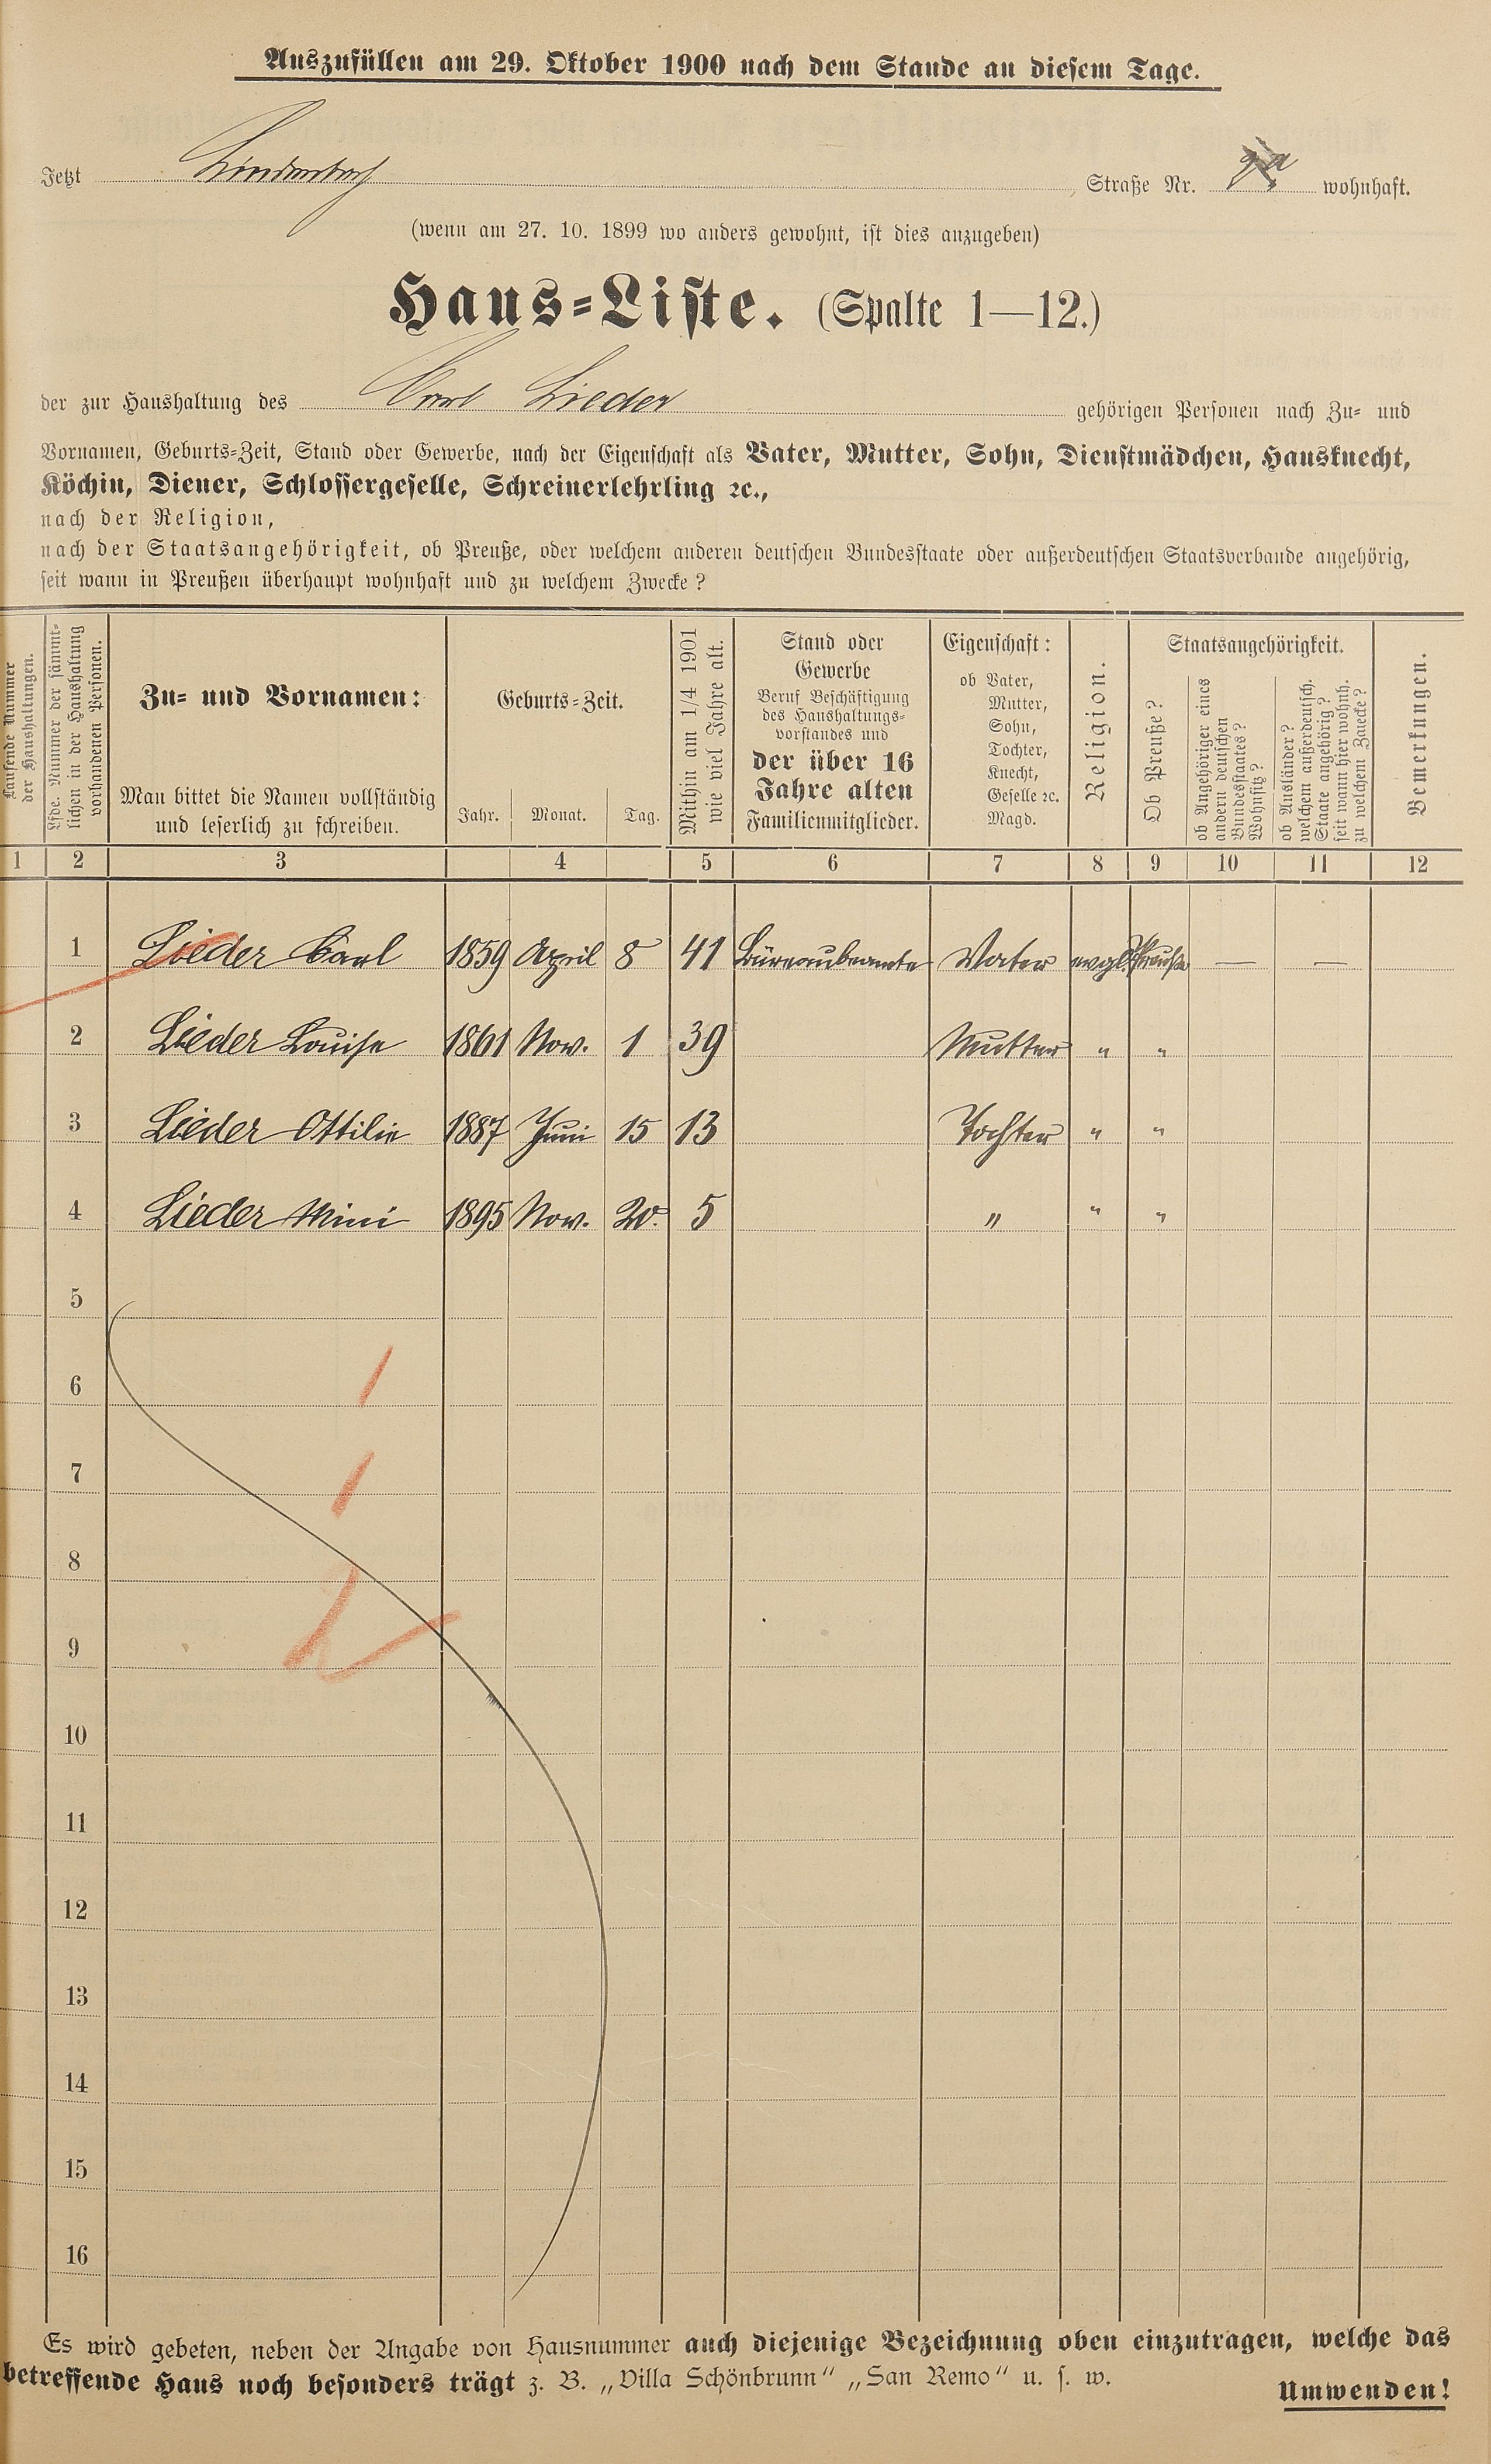 Auszufüllen am 29. Oktober 1900 nach dem Stande an diesem Tage.
Jetzt Lindenbach, Straße Nr. wohnhaft.
(wenn am 27. 10. 1899 wo anders gewohnt, ist dies anzugeben)
Haus-Liste. (Spalte 1—12.)
der zur Haushaltung des Carl Lieder gehörigen Personen nach Zu- und
Vornamen, Geburts-Zeit, Stand oder Gewerbe, nach der Eigenschaft als Vater, Mutter, Sohn, Dienstmädchen, Hausknecht,
Köchin, Diener, Schlossergeselle, Schreinerlehrling ꝛc.,
nach der Religion,
nach der Staatsangehörigkeit, ob Preuße, oder welchem anderen deutschen Bundesstaate oder außerdeutschen Staatsverbande angehörig,
seit wann in Preußen überhaupt wohnhaft und zu welchem Zwecke?
Laufende Nummer
der Haushaltungen.
Lfde. Nummer der sämmt-
lichen in der Haushaltung
vorhandenen Personen.
Zu- und Vornamen:
Man bittet die Namen vollständig
und leserlich zu schreiben.
Geburts-Zeit.
Jahr. Monat. Tag.
Mithin am 1/4 1901
wie viel Jahre alt.
Stand oder
Gewerbe
Beruf Beschäftigung
des Haushaltungs-
vorstandes und
der über 16
Jahre alten
Familienmitglieder.
Eigenschaft:
ob Vater,
Mutter,
Sohn,
Tochter,
Knecht,
Geselle ꝛc.
Magd.
Religion.
Staatsangehörigkeit.
Ob Preuße?
ob Angehöriger eines
andern deutschen
Bundesstaates?
Wohnsitz?
ob Ausländer?
welchem außerdeutsch.
Staate angehörig?
seit wann hier wohnh.
zu welchem Zwecke?
Bemerkungen.
1 2 3 4 5 6 7 8 9 10 11 12
1 Lieder Carl 1859 April 8 41 Büreaubeamte Vater evgl. Preuße — —
2 Lieder Louise 1861 Nov. 1 39 Mutter " "
3 Lieder Ottilie 1887 Juni 15 13 Tochter " "
4 Lieder Mini 1895 Nov. 20. 5 " " "
5
6
7
8
9
10
11
12
13
14
15
16
Es wird gebeten, neben der Angabe von Hausnummer auch diejenige Bezeichnung oben einzutragen, welche das
betreffende Haus noch besonders trägt z. B. „Villa Schönbrunn“ „San Remo“ u. s. w.
Umwenden!